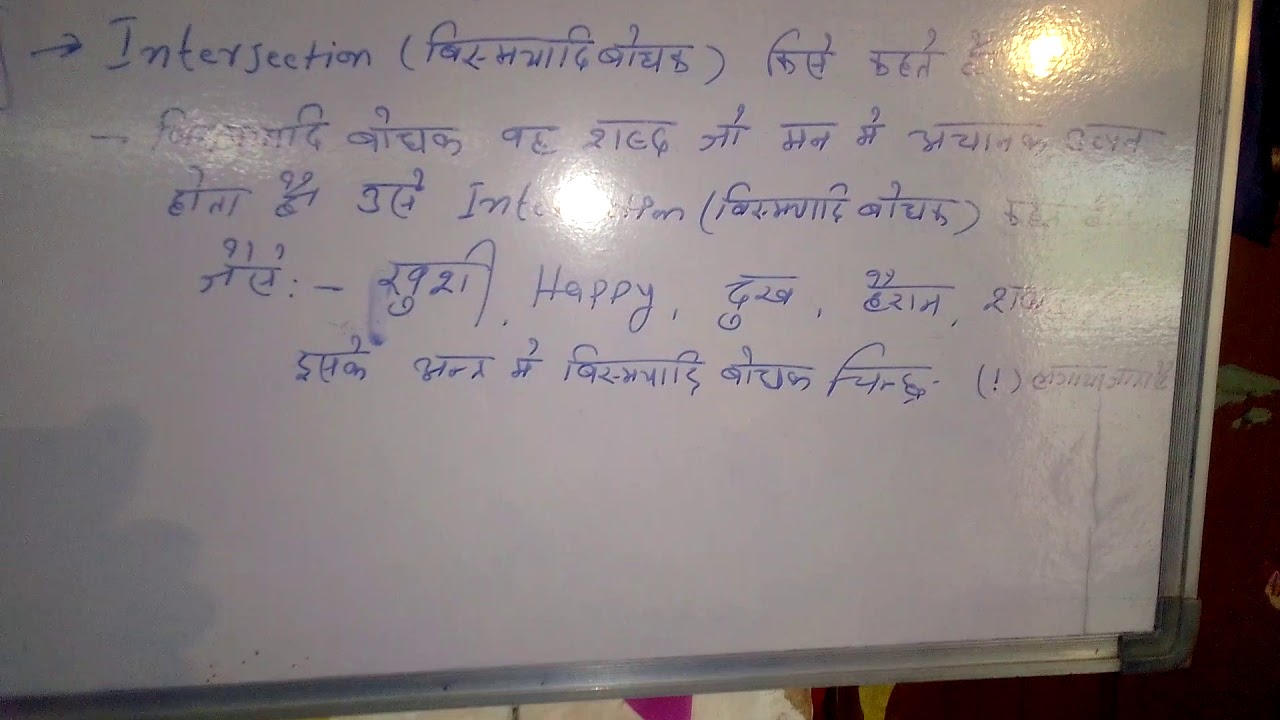 → Intersection (विस्मयादि बोधक) किसे कहते है
- विस्मयादि बोधक वह शब्द जो मन मे अचानक उत्पन
होता है उसे (विस्मयादि बोधक)
जैसे:- खुशी, Happy, दुख, हैरान,
इसके अन्त मे विस्मयादि बोधक चिन्ह - (!) लगाया जाता है